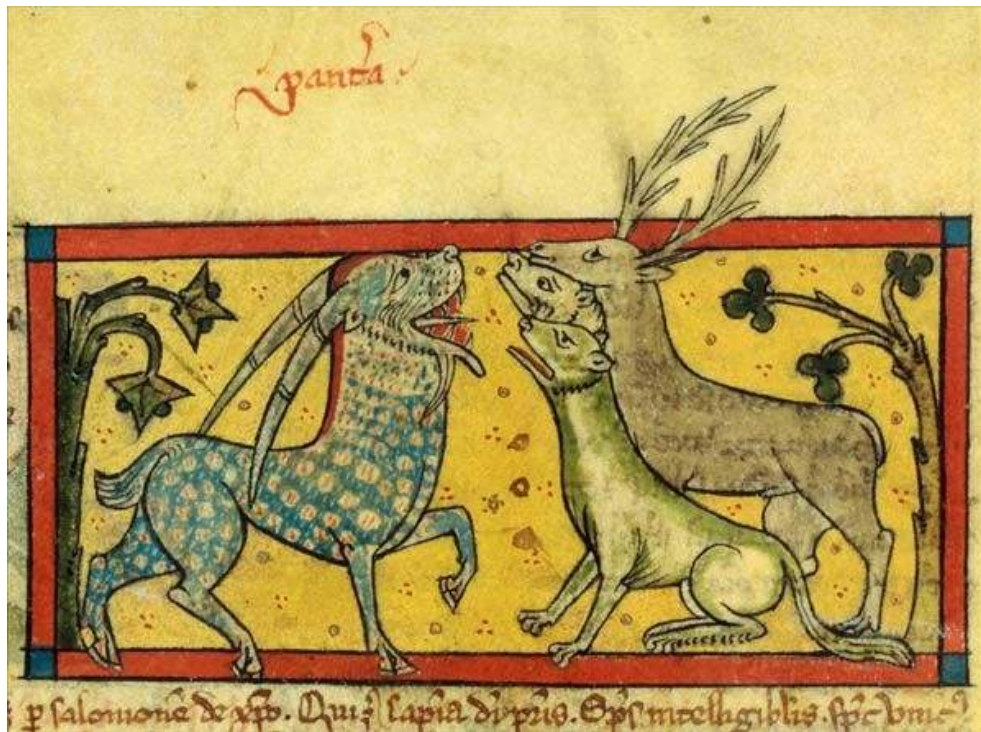 pant̄a.
ꝑ salomonē de xp̄o. Quiꝫ sapīa dī pr̄is. Sp̄s intelligiblis. sp̄c vnicꝰ